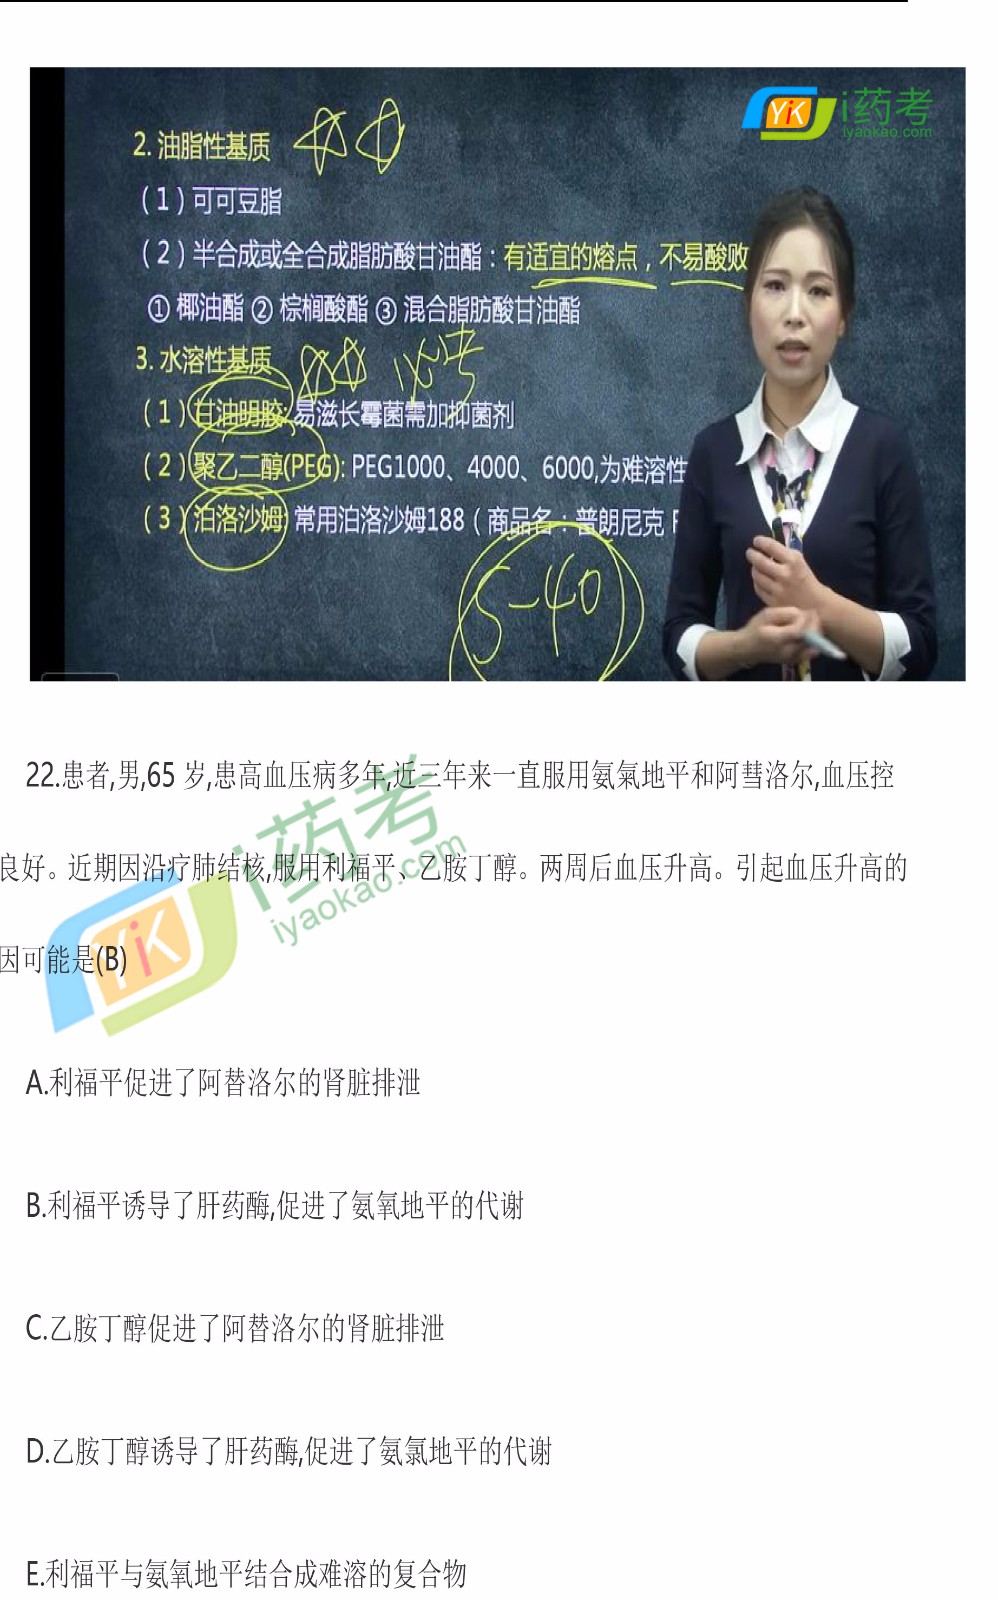 YiK i药考
iyaokao.com
2. 油脂性基质
（1）可可豆脂
（2）半合成或全合成脂肪酸甘油酯：有适宜的熔点，不易酸败
① 椰油酯 ② 棕榈酸酯 ③ 混合脂肪酸甘油酯
3. 水溶性基质 必考
（1）甘油明胶: 易滋长霉菌需加抑菌剂
（2）聚乙二醇(PEG): PEG1000、4000、6000,为难溶性
（3）泊洛沙姆: 常用泊洛沙姆188（商品名：普朗尼克 F
5-40
22.患者,男,65 岁,患高血压病多年,近三年来一直服用氨氣地平和阿彗洛尔,血压控
良好。近期因沿疗肺结核,服用利福平、乙胺丁醇。两周后血压升高。引起血压升高的
因可能是(B)
YiK i药考
iyaokao.com
A.利福平促进了阿替洛尔的肾脏排泄
B.利福平诱导了肝药酶,促进了氨氧地平的代谢
C.乙胺丁醇促进了阿替洛尔的肾脏排泄
D.乙胺丁醇诱导了肝药酶,促进了氨氯地平的代谢
E.利福平与氨氧地平结合成难溶的复合物